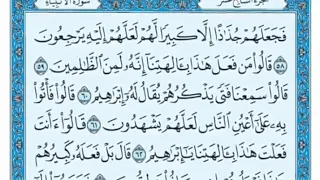 الجزء السابع عشر سورة الأنبياء
فَجَعَلَهُمْ جُذَٰذًا إِلَّا كَبِيرًا لَّهُمْ لَعَلَّهُمْ إِلَيْهِ يَرْجِعُونَ
٥٨ قَالُوا۟ مَن فَعَلَ هَٰذَا بِـَٔالِهَتِنَآ إِنَّهُۥ لَمِنَ ٱلظَّٰلِمِينَ ٥٩
قَالُوا۟ سَمِعْنَا فَتًى يَذْكُرُهُمْ يُقَالُ لَهُۥٓ إِبْرَٰهِيمُ ٦٠ قَالُوا۟ فَأْتُوا۟
بِهِۦ عَلَىٰٓ أَعْيُنِ ٱلنَّاسِ لَعَلَّهُمْ يَشْهَدُونَ ٦١ قَالُوٓا۟ ءَأَنتَ
فَعَلْتَ هَٰذَا بِـَٔالِهَتِنَا يَٰٓإِبْرَٰهِيمُ ٦٢ قَالَ بَلْ فَعَلَهُۥ كَبِيرُهُمْ